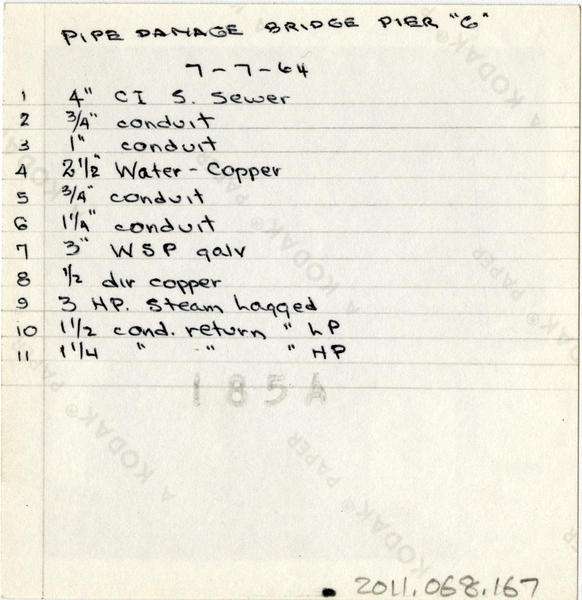 PIPE DAMAGE BRIDGE PIER "6"
7-7-64
1 4" CI S. Sewer
2 3/4" conduit
3 1" conduit
4 2 1/2" Water - Copper
5 3/4" conduit
6 1 1/4" conduit
7 3" WSP galv
8 1/2 dir copper
9 3 HP. Steam Lagged
10 1 1/2 cond. return " LP
11 1 1/4 " " " HP
185A
A KODAK® PAPER
A KODAK® PAPER
A KODAK® PAPER
A KODAK® PAPER
2011.068.167